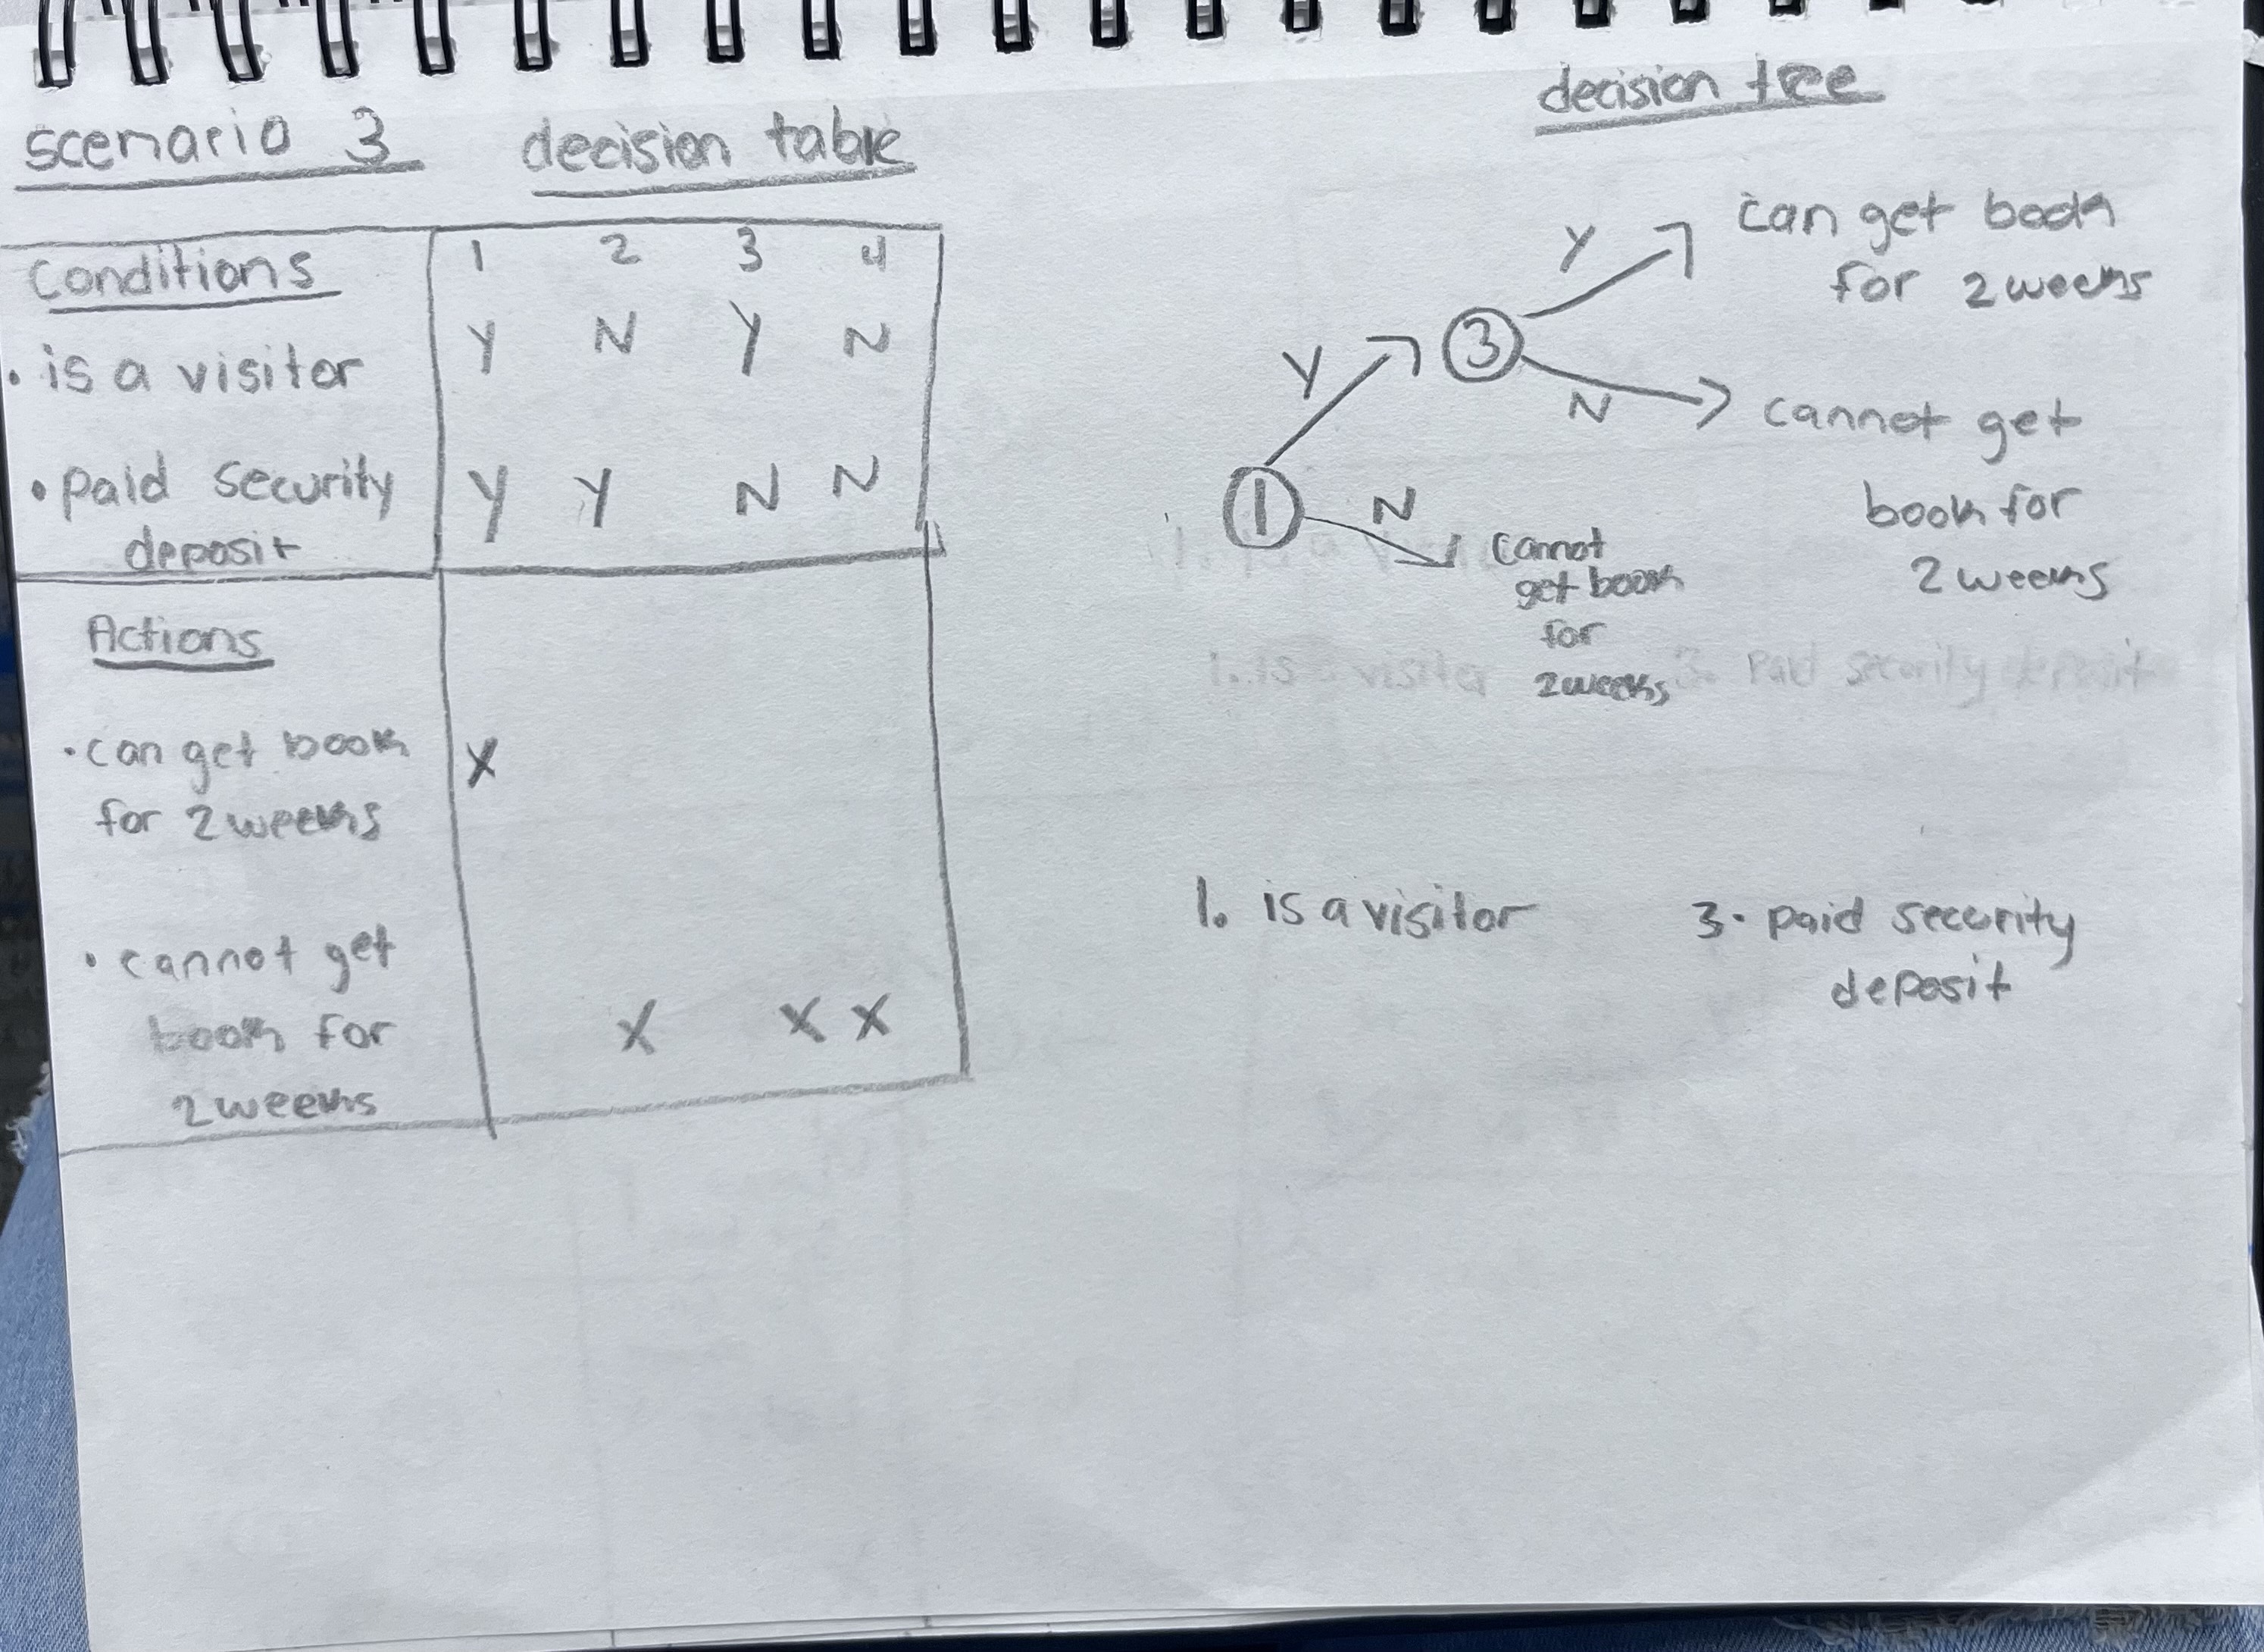 scenario 3 decision table
Conditions 1 2 3 4
• is a visitor Y N Y N
• paid security Y Y N N
deposit
Actions
• can get book X
for 2 weeks
• cannot get
book for X X X
2 weeks
decision tree
Y can get book
for 2 weeks
Y 3
N cannot get
book for
2 weeks
1 N cannot
get book
for
2 weeks
1. is a visitor 3. paid security deposit
1. is a visitor 3. paid security
deposit